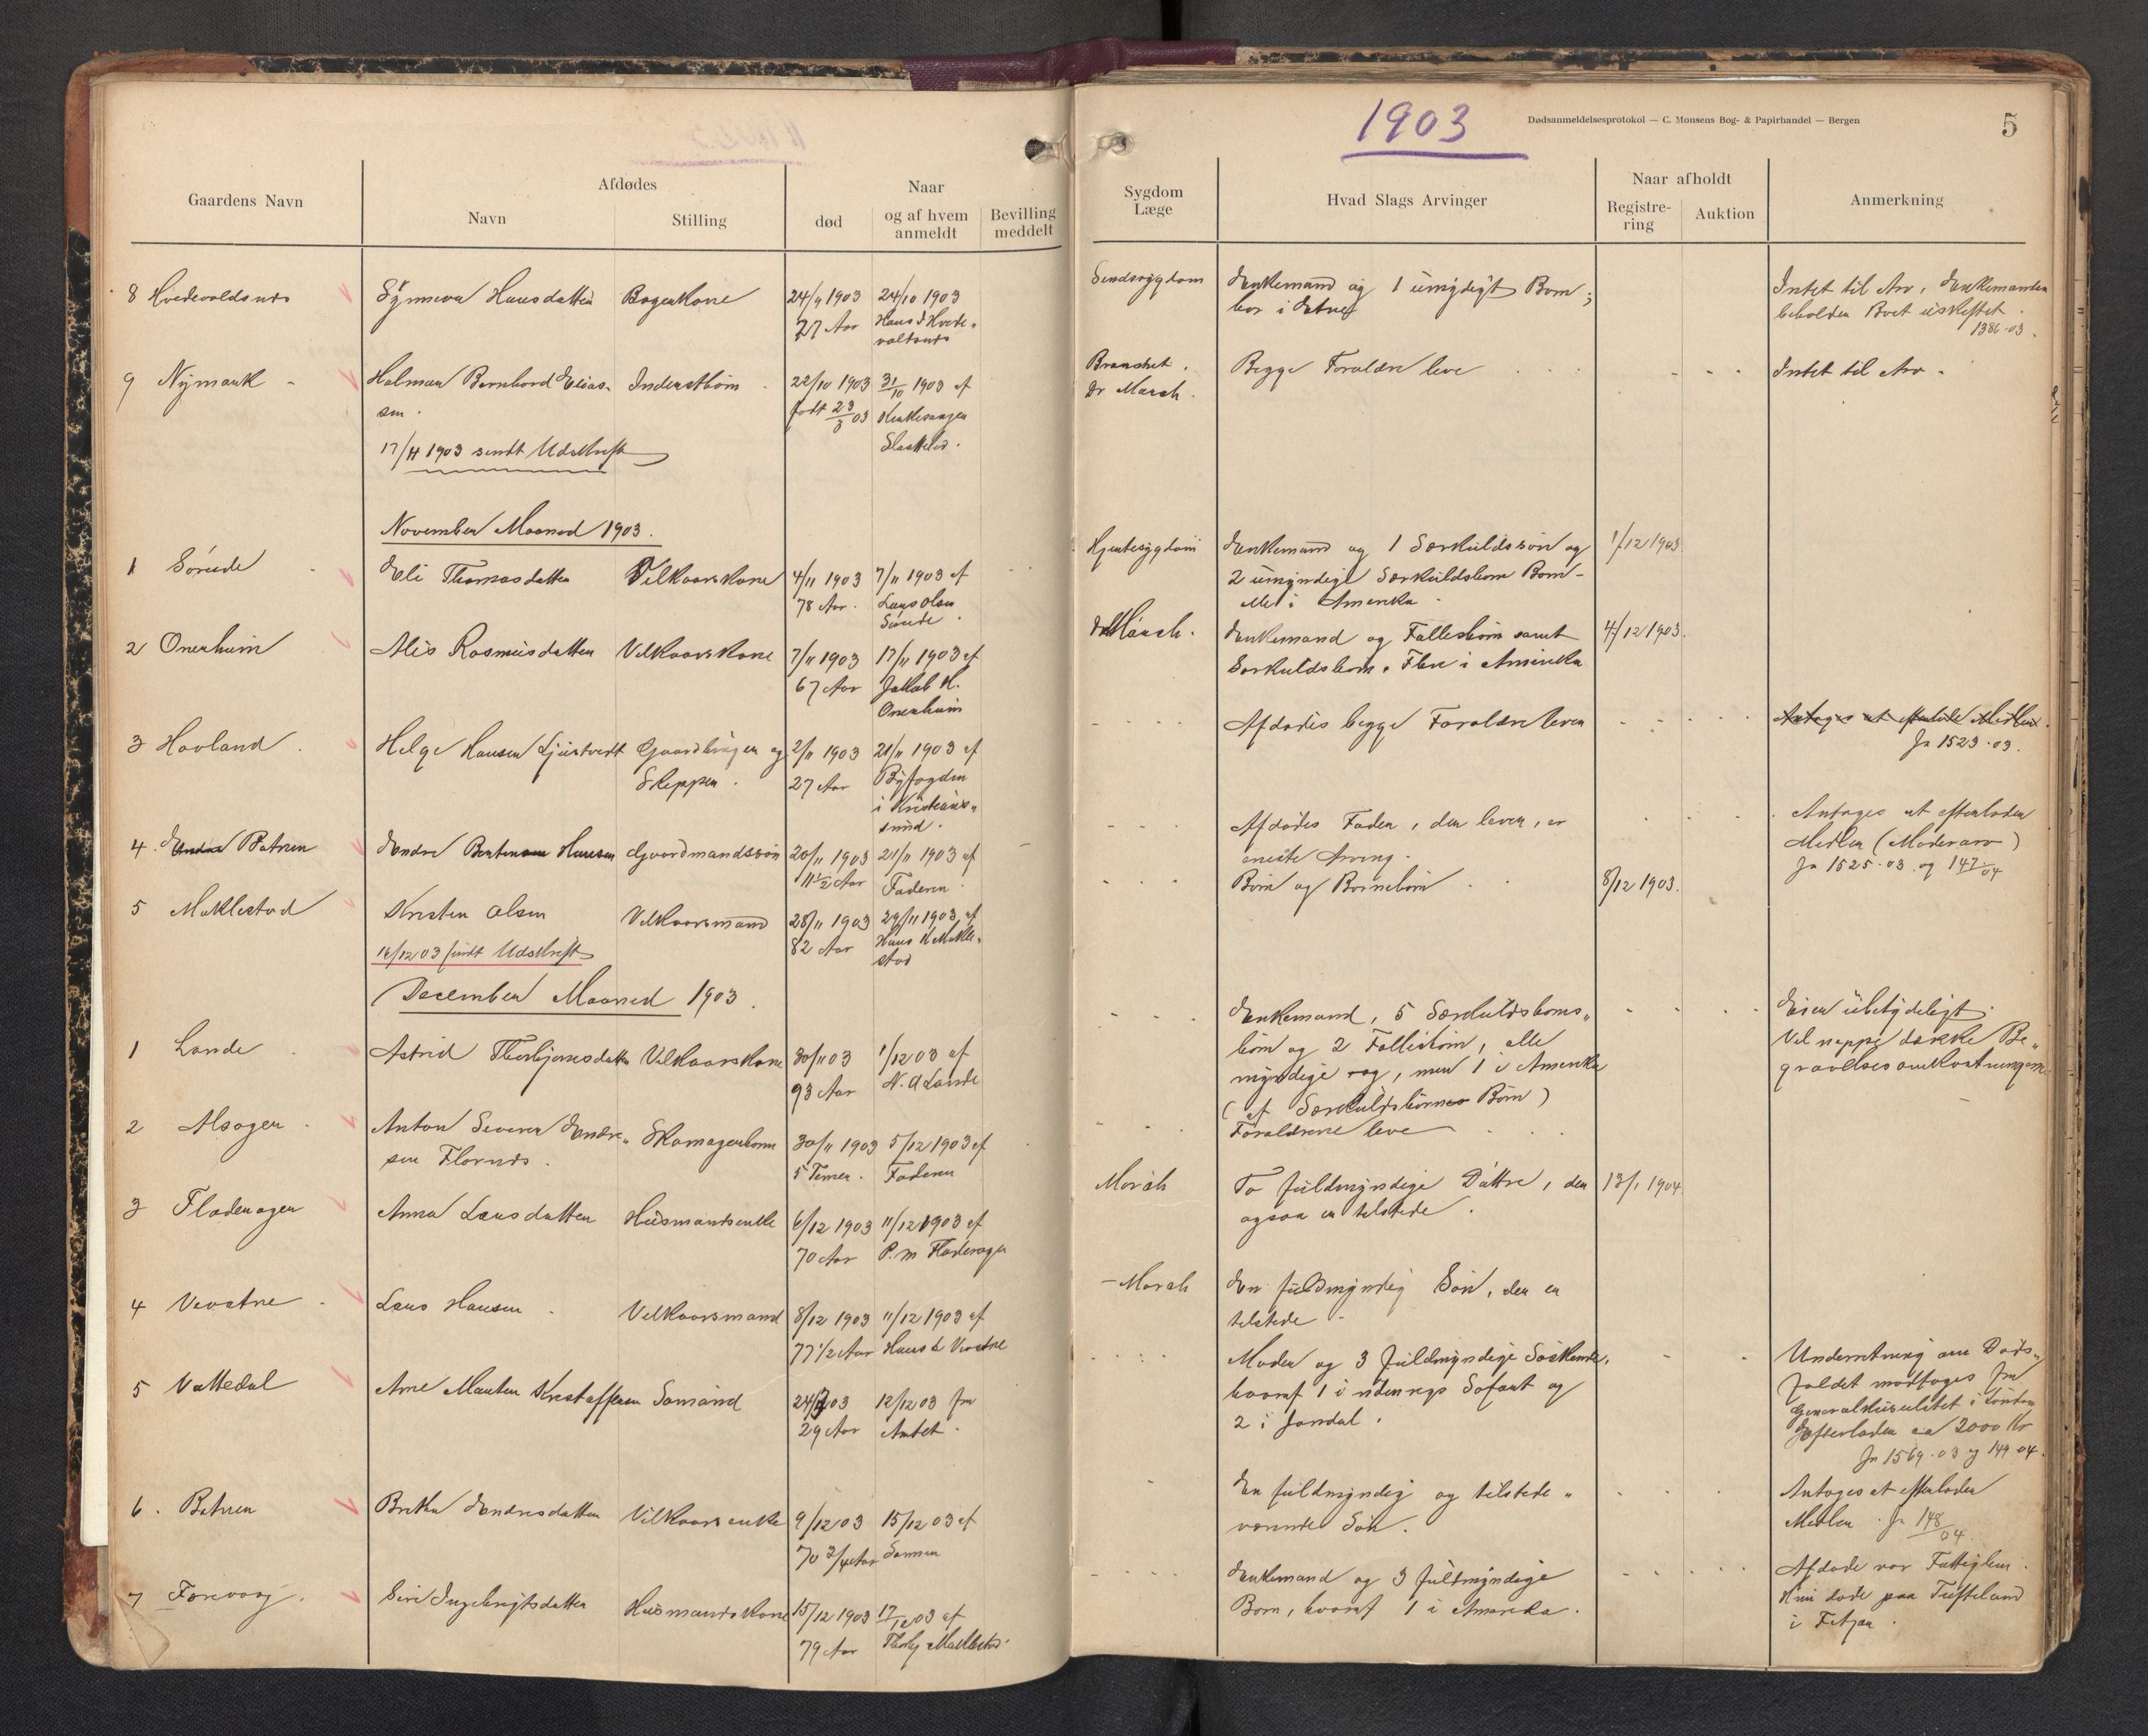 Gaardens Navn
Afdødes
Navn
Stilling
Naar
død
og af hvem
anmeldt
Bevilling
meddelt
8 Hvedevoldsnes Synneva Hansdatter Bagerkone 24/9 1903 24/10 1903
77 Aar Hans J Hvede-
voldsnes
9 Nymark Halman Bernhard Elias- Inderstbarn 22/10 1903 31/10 1903 af
sen. født 23/3 03 Kirkesanger
17/11 1903 sendt Udskrift
November Maaned 1903.
1 Sørude Eli Thomasdatter Vilkaarskone 4/11 1903 7/11 1903 af
78 Aar. Lars Olsen
2 Onarheim Alis Rasmusdatter Vilkaarskone 7/11 1903 17/11 1903 af
67 Aar Jakob H.
Onarheim
3 Hovland Helge Hansen Gaardbruger og 2/11 1903 21/11 1903 af
Skipper. 27 Aar Byfogden
i Kristians-
sund.
4. Batneu Endre Hansen Gaardmandssøn 20/11 1903 21/11 1903 af
11 1/2 Aar Faderen
5 Møklestad Kristen Olsen Vilkaarsmand 28/11 1903 29/11 1903 af
82 Aar Hans K Møkle-
stad
16/12 03 sendt Udskrift
December Maaned 1903.
1 Lande Astrid Thorbjørnsdatter Vilkaarskone 30/11 03 1/12 03 af
93 Aar N. A Lande
2 Alsager Anton Severin Endre- Skomagerbarn 30/11 1903 5/12 1903 af
sen Flornes. 5 Timer. Faderen
3 Fladerager Anna Larsdatter Husmandsenke 6/12 1903 11/12 1903 af
70 Aar P. M Fladerager
4 Vevatne Lars Hansen Vilkaarsmand 8/12 1903 11/12 1903 af
77 1/2 Aar Hans L Vevatne
5 Vattedal Arne Marten Kristoffersen Sømand 24/7 03 12/12 03 fra
29 Aar Amtet.
6. Batneu Brita Endresdatter Vilkaarsenke 9/12 03 15/12 03 af
70 3/4 Aar Sønnen
7 Forevaag Siri Ingebrigtsdatter Husmandskone 15/12 1903 17/12 03 af
79 Aar
1903
Dødsanmeldelsesprotokol — C. Monsens Bog- & Papirhandel — Bergen
5
Sygdom
Læge
Hvad Slags Arvinger
Naar afholdt
Registre-
ring
Auktion
Anmerkning
Sindssygdom Enkemand og 1 umyndigt Barn; Intet til Arv, Enkemanden
bor i Etne beholder Boet uskiftet.
1386.03.
Bronchit. Begge Forældre leve Intet til Arv.
Dr March.
Hjertesygdom Enkemand og 1 Særkuldssøn og 1/12 1903
2 umyndige Særkuldsbørn Børn-
Alle i Amerika
Dr March. Enkemand og Fællesbørn samt 4/12 1903.
Særkuldsbørn. Flere i Amerika
Afdødes begge Forældre lever Antages at efterlade Midler.
Jr 1523.03.
Afdødes Fader, der lever, er Antages at efterlade
eneste Arving. Midler (Mødrearv)
Jr 1525.03. og 147/04
Børn og Børnebørn 8/12 1903.
Enkemand, 5 Særkuldsbørns- Eier ubetydeligt.
børn og 2 Fællesbørn, alle Vil neppe dække Be-
myndige og, men 1 i Amerika gravelsesomkostningerne
(af Særkuldsbørns Børn)
Forældrene leve
March To fuldmyndige Døttre, der 13/1 1904
ogsaa er tilstede.
March En fuldmyndig Søn, der er
tilstede
Moder og 3 fuldmyndige Søskende, Underretning om Døds-
hvoraf 1 i udenrigs Sofart og faldet modtoges fra
2 i Jondal. Generalkonsulatet i London
Efterlader ca 2000 Kr
Jr 1569.03 og 149 04.
En fuldmyndig og tilstede- Antages at efterlader
værende Søn. Midler. Jr 148/04
Enkemand og 3 fuldmyndige Afdøde var Fattiglem.
Børn, hvoraf 1 i Amerika. Hun døde paa Tufteland
i Fitjar